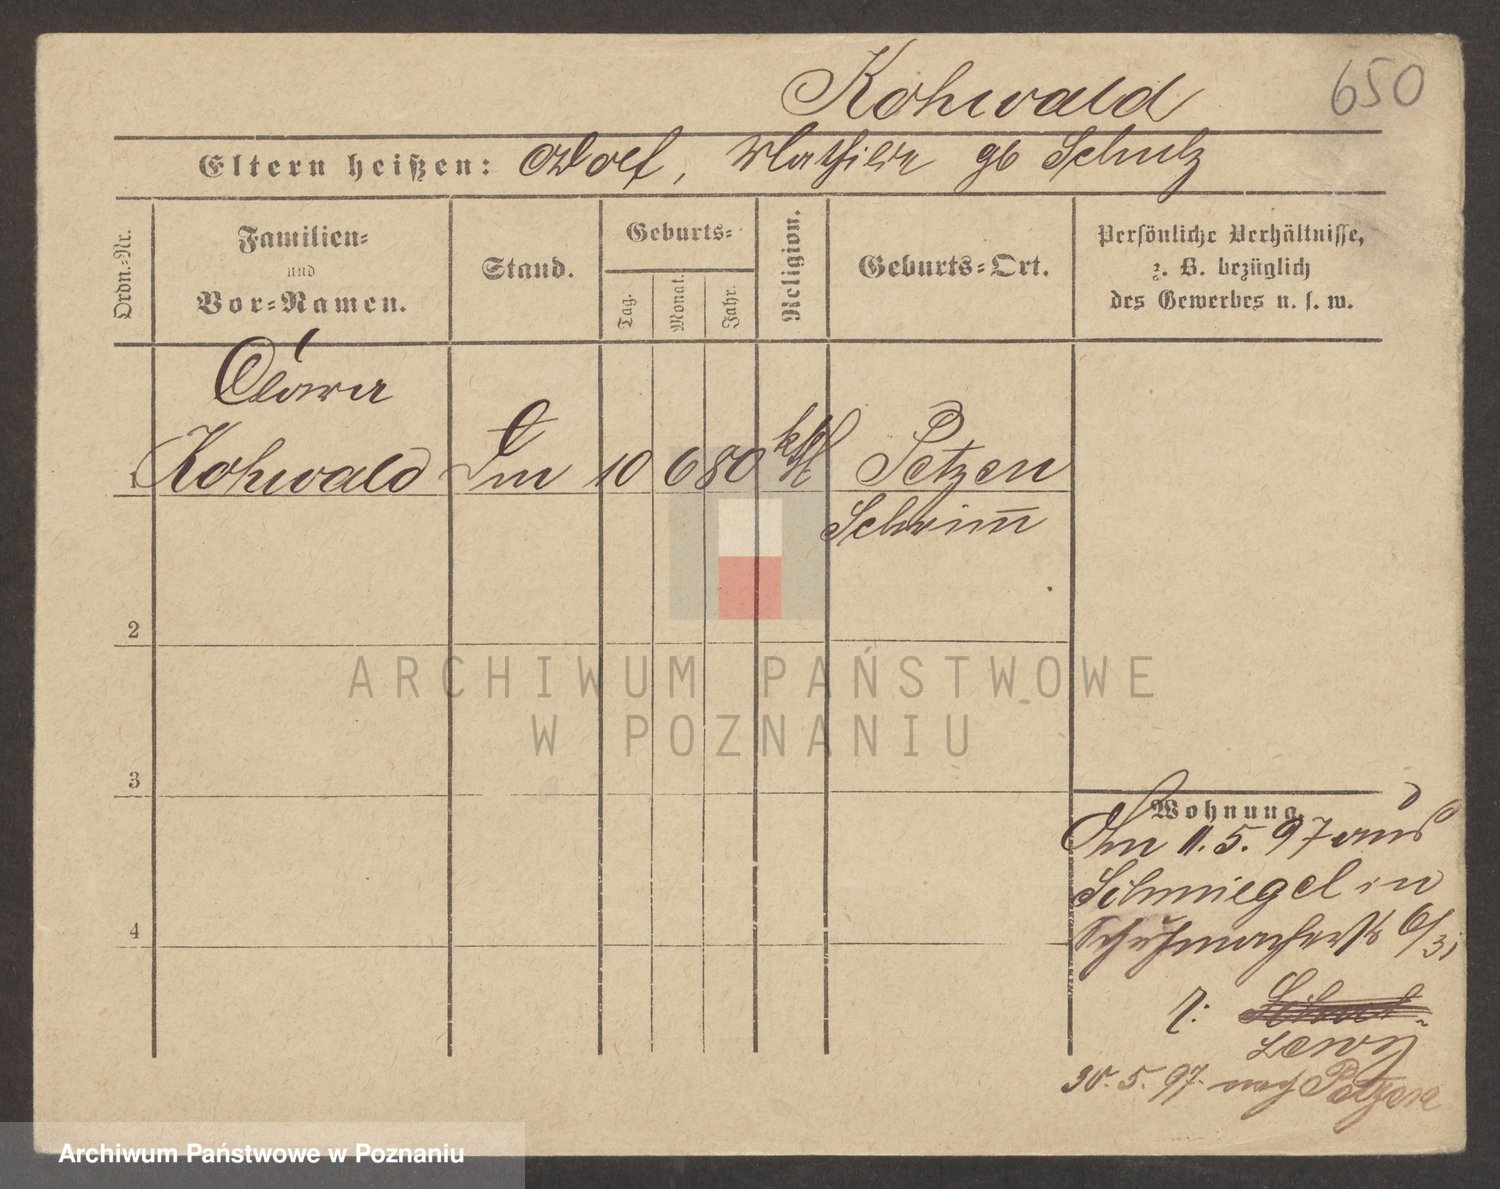 Kohwald
650
Eltern heißen: Adolf, Mathilde gb Schulz
Ordn.-Nr.
Familien-
und
Vor-Namen.
Stand.
Geburts-
Tag.
Monat.
Jahr.
Religion.
Geburts-Ort.
Persönliche Verhältnisse,
z. B. bezüglich
des Gewerbes u. s. w.
Clara
1 Kohwald 10 6 80 kath Petzen
Schrimm
2
ARCHIWUM PAŃSTWOWE
W POZNANIU
3
Wohnung.
11.5.97 aus
Schmiegel in
Schuhmacherstr 6/31
4
30.5.97. nach Petzen
Archiwum Państwowe w Poznaniu